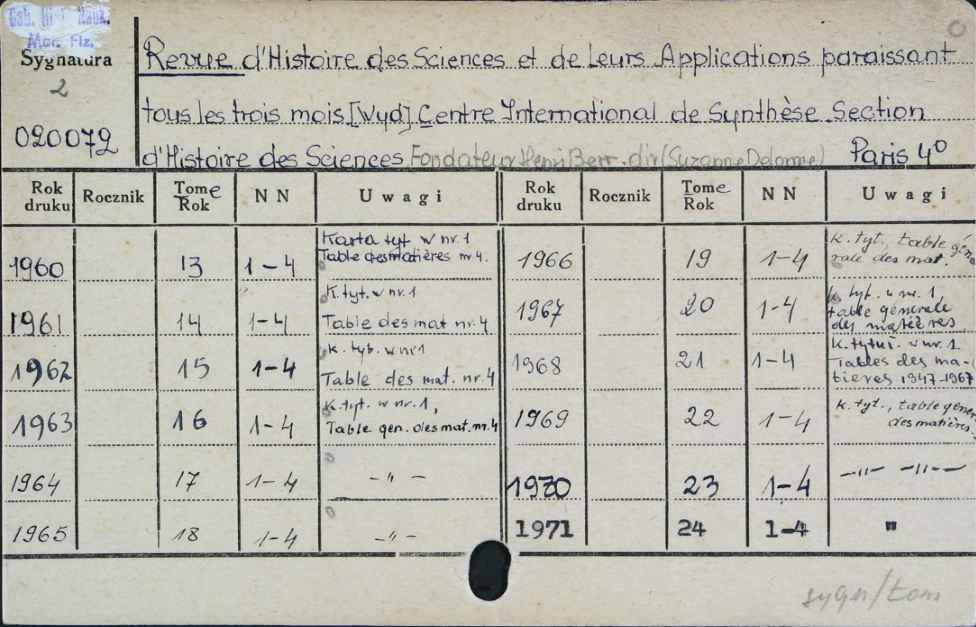 Gab. Hist. Nauk.
Mat. Fiz.
Sygnatura
2
020072
Revue d'Histoire des Sciences et de Leurs Applications paraissant
tous les trois mois [Wyd] Centre International de Synthèse. Section
d'Histoire des Sciences Fondateur Henri Berr. dir (Suzanne Delorme) Paris 4º
Rok druku Rocznik Tome Rok NN Uwagi Rok druku Rocznik Tome Rok NN Uwagi
1960 13 1-4 Karta tyt w nr. 1 Table des matières nr 4. 1966 19 1-4 K. tyt., table générale des mat.
1961 14 1-4 K. tyt. w nr. 1 Table des mat nr. 4 1967 20 1-4 k. tyt. w nr. 1, table générale des matières
1962 15 1-4 K. tyt. w nr 1 Table des mat. nr. 4 1968 21 1-4 K. tytuł. w nr. 1. Tables des matières 1947-1967
1963 16 1-4 K. tyt. w nr. 1, Table gén. des mat. nr. 4 1969 22 1-4 K. tyt., table génér des matières.
1964 17 1-4 -"- 1970 23 1-4 -"- -"-
1965 18 1-4 -"- 1971 24 1-4 "
sygn/tom